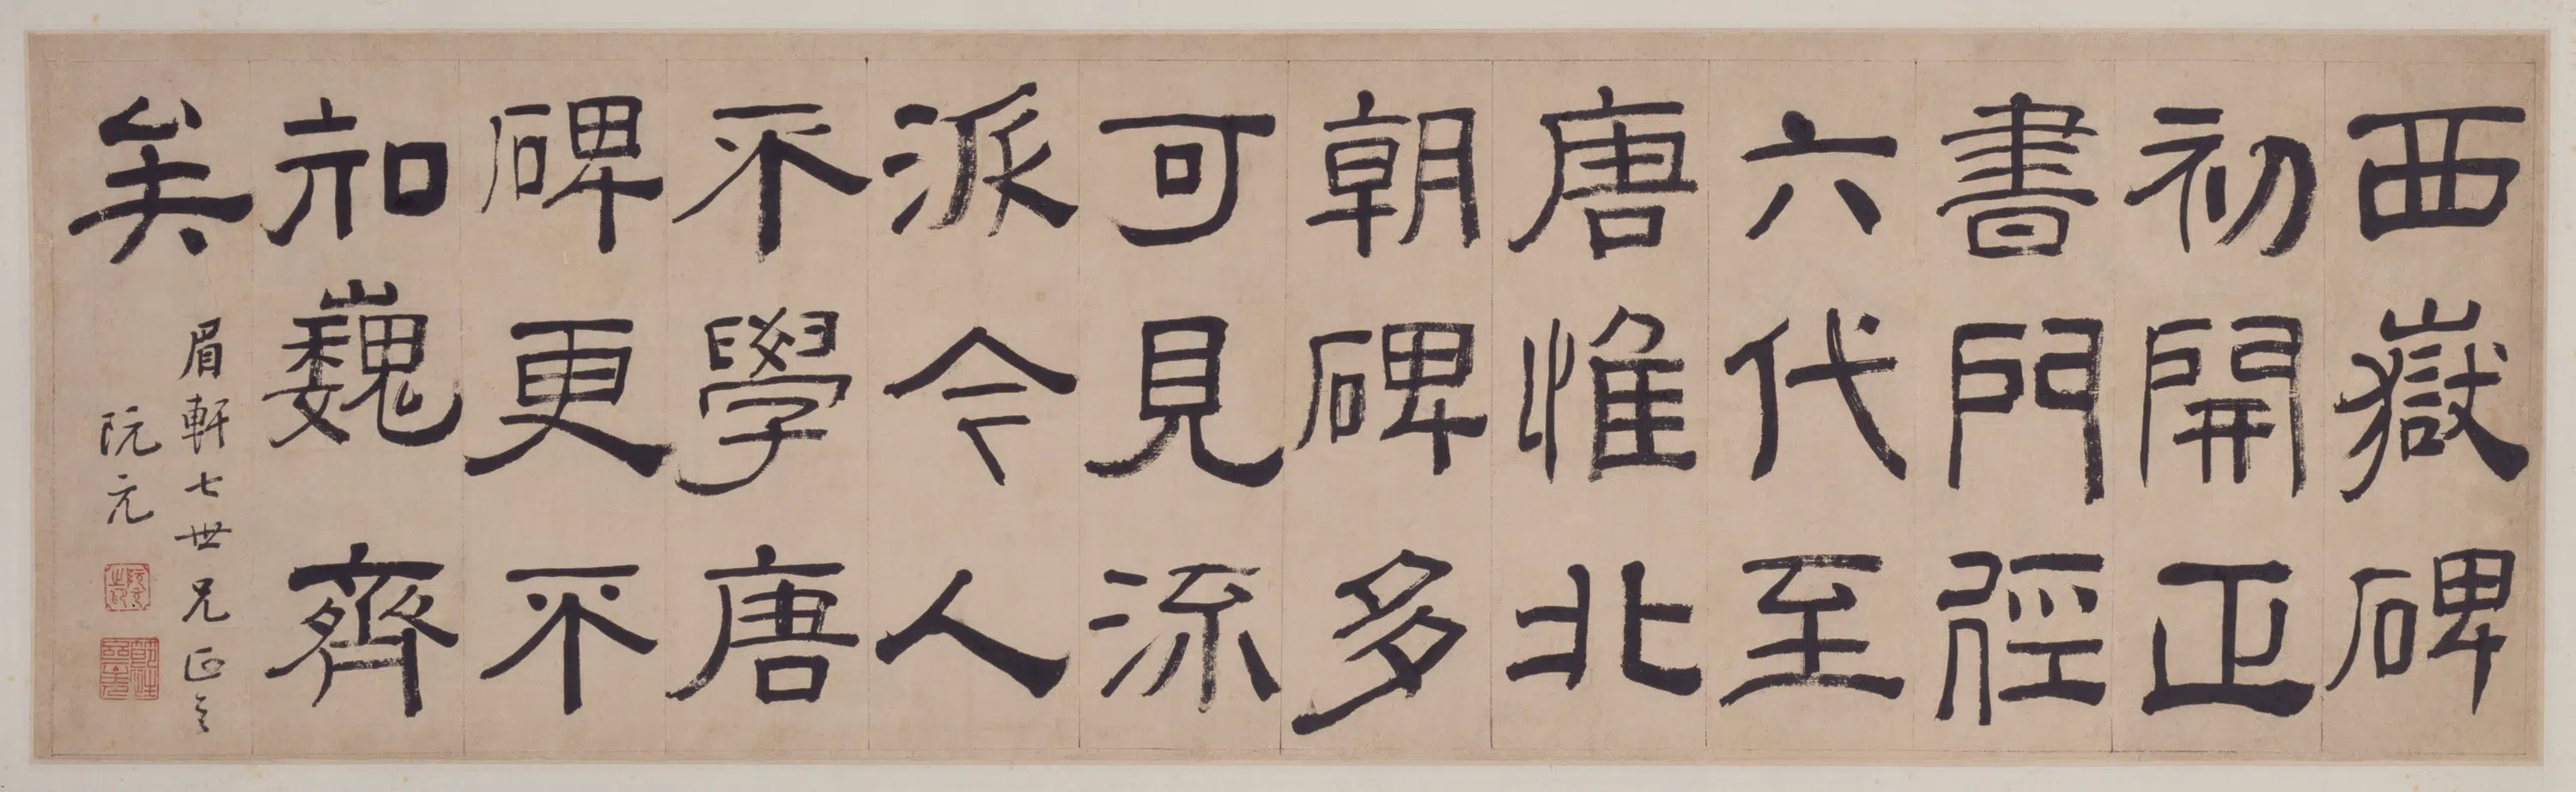 西嶽碑
初開正
書門徑
六代至
唐惟北
朝碑多
可見流
派今人
不學唐
碑更不
知魏齊
矣
眉軒七世兄正之
阮元